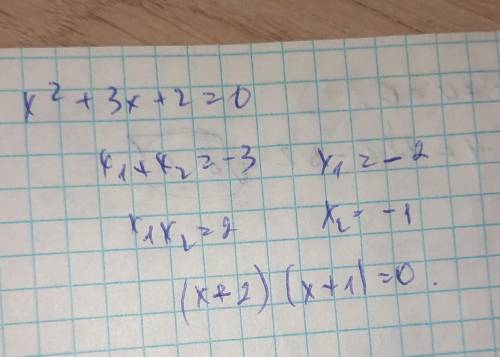 x² + 3x + 2 = 0
x₁ + x₂ = -3 x₁ = -2
x₁x₂ = 2 x₂ = -1
(x+2)(x+1) = 0.